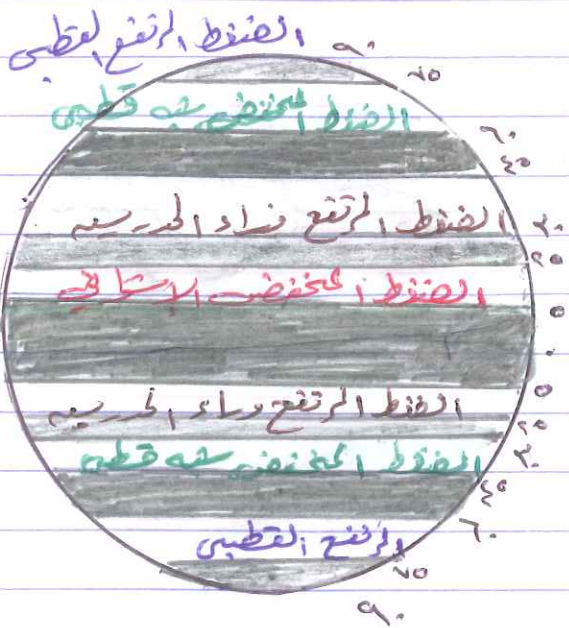 الضغط المرتفع القطبي
٩٠
٧٥
الضغط المنخفض شبه قطبي
٦٠
٤٥
الضغط المرتفع وراء المدرسيه
٣٠
٢٥
الضغط المنخفض الإستوائي
٥
٠
٥
الضغط المرتفع وراء المدرسيه
٢٥
٣٠
الضغط المنخفض شبه قطبي
٤٥
٦٠
المرتفع القطبي
٧٥
٩٠